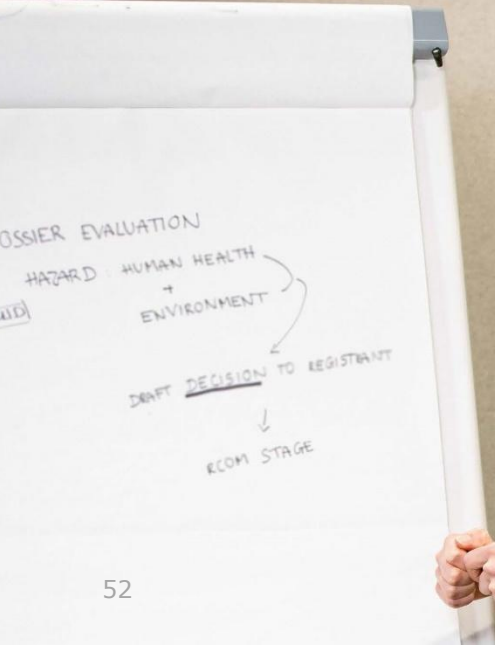 OSSIER EVALUATION
HAZARD : HUMAN HEALTH
+
ENVIRONMENT
DRAFT DECISION TO REGISTRANT
RCOM STAGE
52